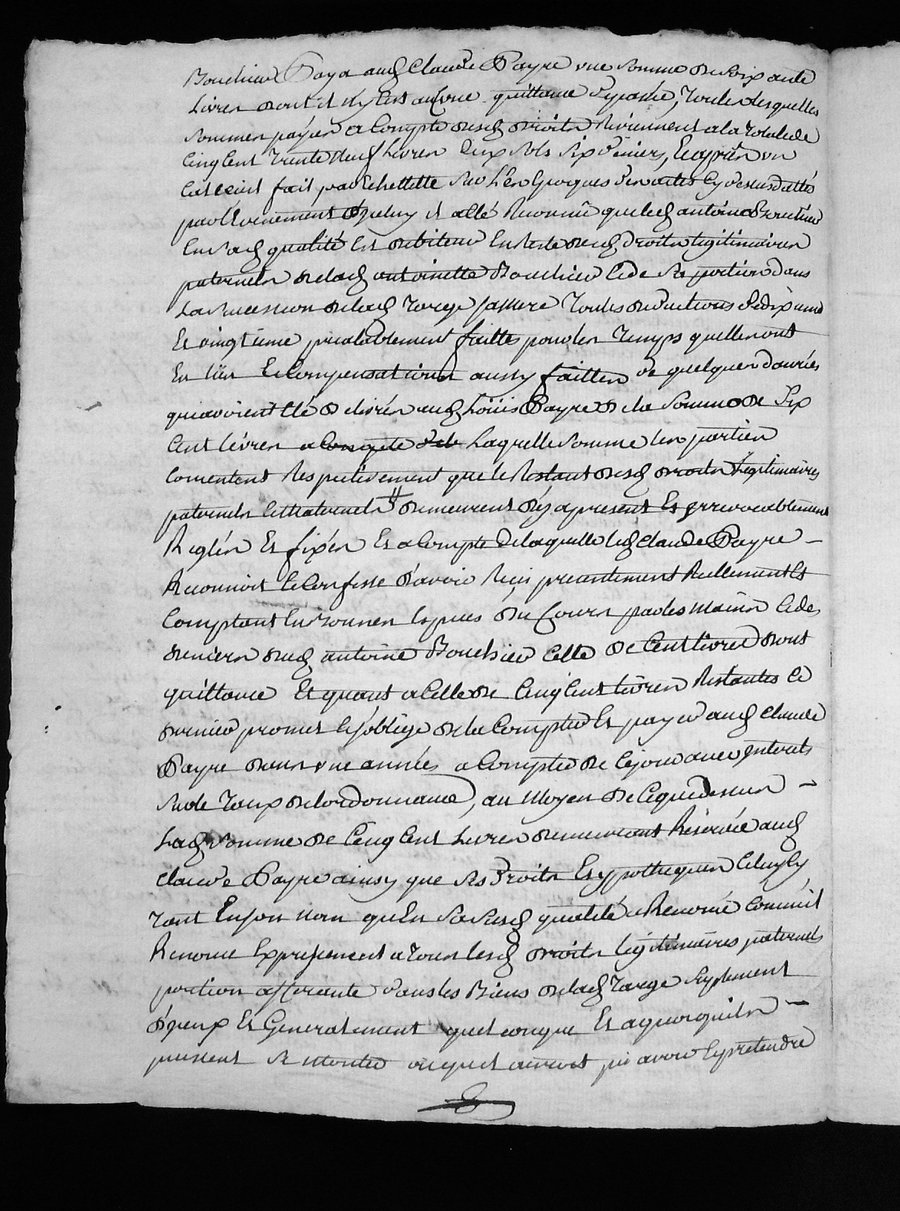 Bouchieu Paya aud Claude Payre une somme de soixante
Livres dont il Quittance, Toutes lesquelles
sommes payées a Compte desd droits Reviennent a la Totale de
Cinq Cent trente neuf Livres deux sols six deniers, Et après un
Calcul fait par Echettette sur les Epoques des actes cy dessus dattés
par l'Evenement duquel il a été Reconnu que led antoine Bouchieu
En sad qualité Est debiteur En Reste desd droits légitimaires
paternels de lad antoinette Bouchieu Et de sa portion dans
La succession de lad Toutes deductions de dixieme
Et vingtieme prealablement faitte pour les Temps quelles ont
En lieu Et Compensations aussy faittes de quelques danrées
qui avoient Eté delivrées aud Louis Payre de la somme de six
Cent Livres a Compte de Laquelle somme les parties
Consentent Respectivement que le Restant desd droits Légitimaires
paternels demeurent des a present Et irrevocablement
Reglés Et fixés Et a Compte de laquelle led Claude Payre
Reconnoit Et Confesse d'avoir Reçu presentement Reellement Et
Comptant En bonnes Espéces du Cours par les mains Et des
deniers dud antoine Bouchieu Celle de Cent livres dont
quittance Et quant a Celle de Cinq Cent livres Restantes Ce
dernier promet Et s'oblige de la Compter Et payer aud Claude
Payre dans une années a Compter de Ce jour avec interets
au Taux de l'ordonnance, au Moyen de Ce que dessus
Lad somme de Cinq Cent Livres demeurant Réservée aud
Claude Payre ainsy que ses Droits Et ypotheques Celuy cy
Tant En son nom qu'En sa susd qualité a Renoncé Comme il
Renonce Expressement a Tous lesd droits légitimaires paternels
portion afferante dans les Biens de lad
Et Generalement quelconque Et a quoy qu'ils
pussent se monter auroit pu avoir Et pretendre